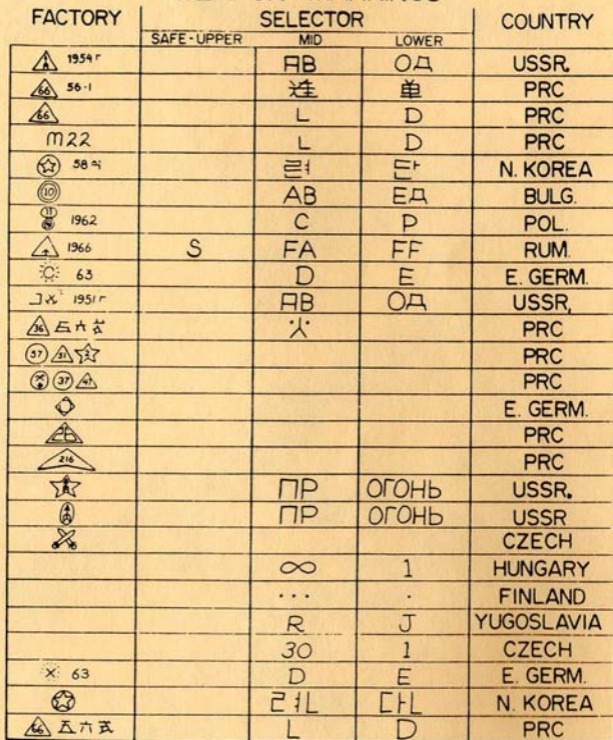 FACTORY SELECTOR COUNTRY
SAFE-UPPER MID LOWER
1954г АВ ОД USSR.
66 56-1 连 单 PRC
66 L D PRC
M22 L D PRC
58 려 단 N. KOREA
10 АВ ЕД BULG.
11 1962 C P POL.
1966 S FA FF RUM.
63 D E E. GERM.
1951г АВ ОД USSR,
36 五六式 火 PRC
37 31 PRC
37 47 PRC
E. GERM.
26 PRC
216 PRC
ПР ОГОНЬ USSR.
ПР ОГОНЬ USSR
CZECH
∞ 1 HUNGARY
... . FINLAND
R J YUGOSLAVIA
30 1 CZECH
63 D E E. GERM.
련 단 N. KOREA
66 五六式 L D PRC